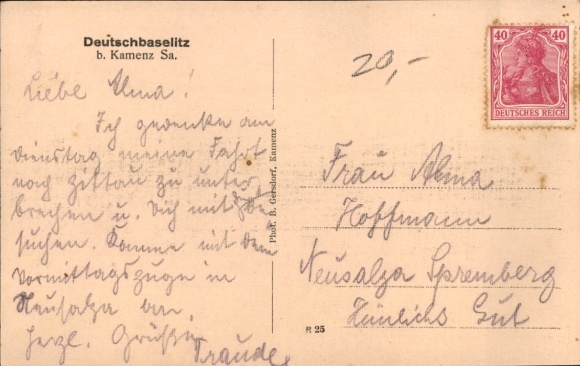 Deutschbaselitz
b. Kamenz Sa.
Liebe Alma!
Ich gedenke am
Dienstag meine Fahrt
nach Zittau zu unter
brechen u. Dich mit Be
suchen. Komme mit dem
Vormittagszuge in
Neusalza an.
Herzl. Grüße
Traude.
Phot. B. Gersdorf, Kamenz
20,-
40 40
DEUTSCHES REICH
Frau Alma
Hoffmann
Neusalza Spremberg
Gut
R 25